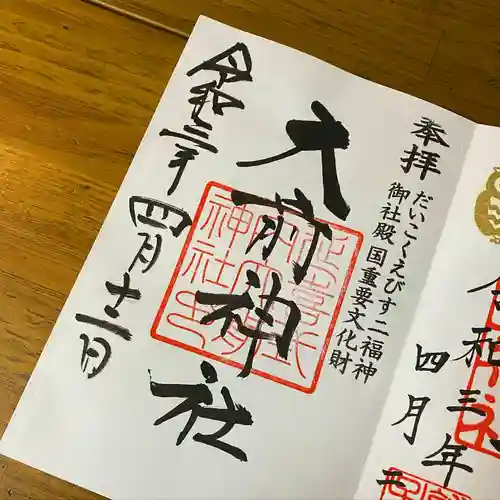 奉拝
だいこくえびす二福神
御社殿国重要文化財
大前神社
令和三年
四月十二日
令和三年
四月